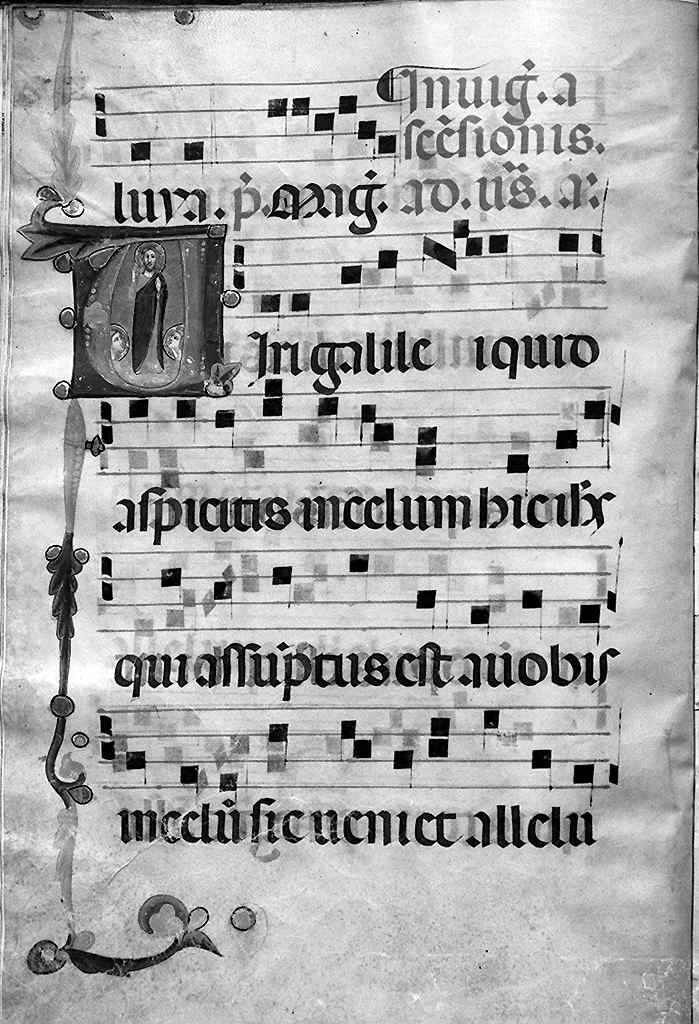 In uig̃. a
scẽsionis.
luya. p̃. Mag̃. ad. uũs. a.
Uiri galilei quid
aspicitis in celum hic ihs̃
qui assũptus est a uobis
in celũ sic ueniet allelu